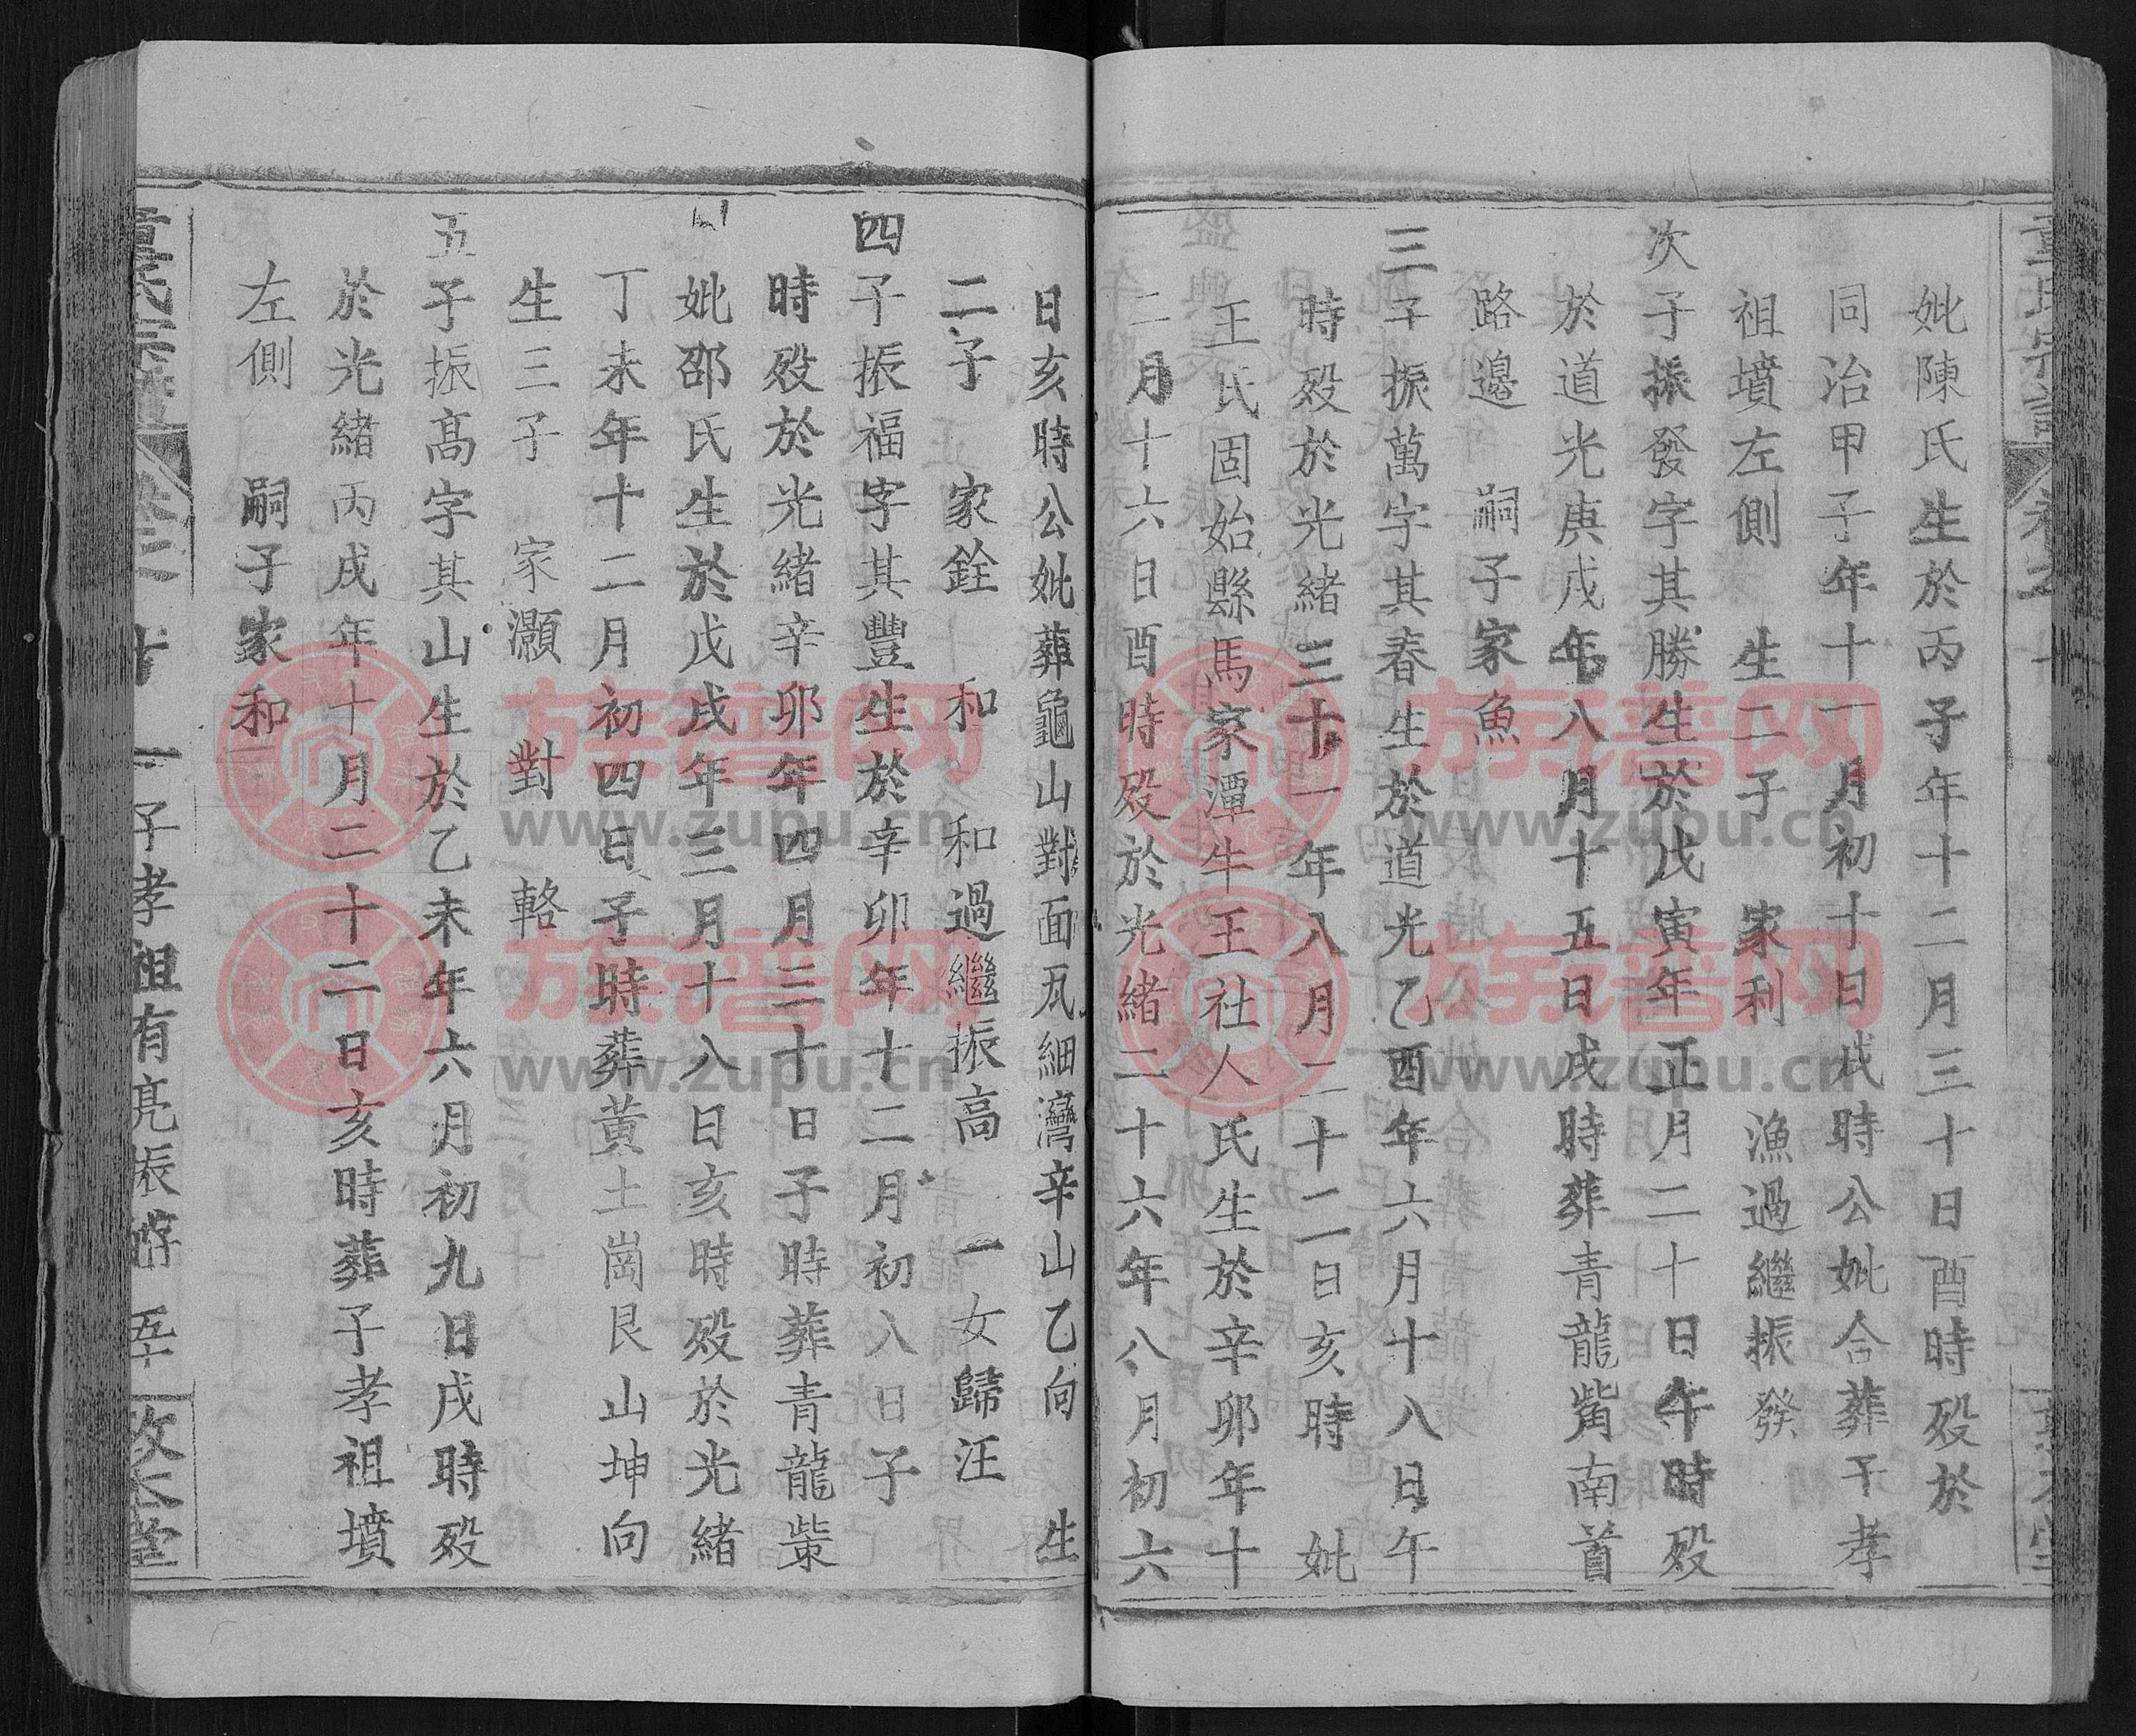 妣陳氏生於丙子年十二月三十日酉時殁於
同治甲子年十一月初十日戌時公妣合葬于孝
祖墳左側 生二子 家利 漁過繼振發
次子振發字其勝生於戊寅年正月二十日午時殁
於道光庚戌年八月十五日戌時葬青龍嵛南首
路邊 嗣子家魚
三子振萬字其春生於道光乙酉年六月十八日午
時殁於光緒三十一年八月二十二日亥時 妣
王氏固始縣馬家潭牛王社人氏生於辛卯年十
二月十六日酉時殁於光緒二十六年八月初六
日亥時公妣葬龜山對面瓦細灣辛山乙向 生
二子 家銓 和 和過繼振高 一女歸汪
四子振福字其豐生於辛卯年十二月初八日子
時殁於光緒辛卯年四月三十日子時葬青龍
妣邵氏生於戊戌年三月十八日亥時殁於光緒
丁未年十二月初四日子時葬黃土崗艮山坤向
生三子 家灝 對 輅
五子振高字其山生於乙未年六月初九日戌時殁
於光緒丙戌年十月二十二日亥時葬子孝祖墳
左側 嗣子家和
童氏宗譜 卷二 十 一子孝祖有亮振 五 敦本堂
族谱网
www.zupu.cn
族谱网
www.zupu.cn
族谱网
www.zupu.cn
族谱网
www.zupu.cn